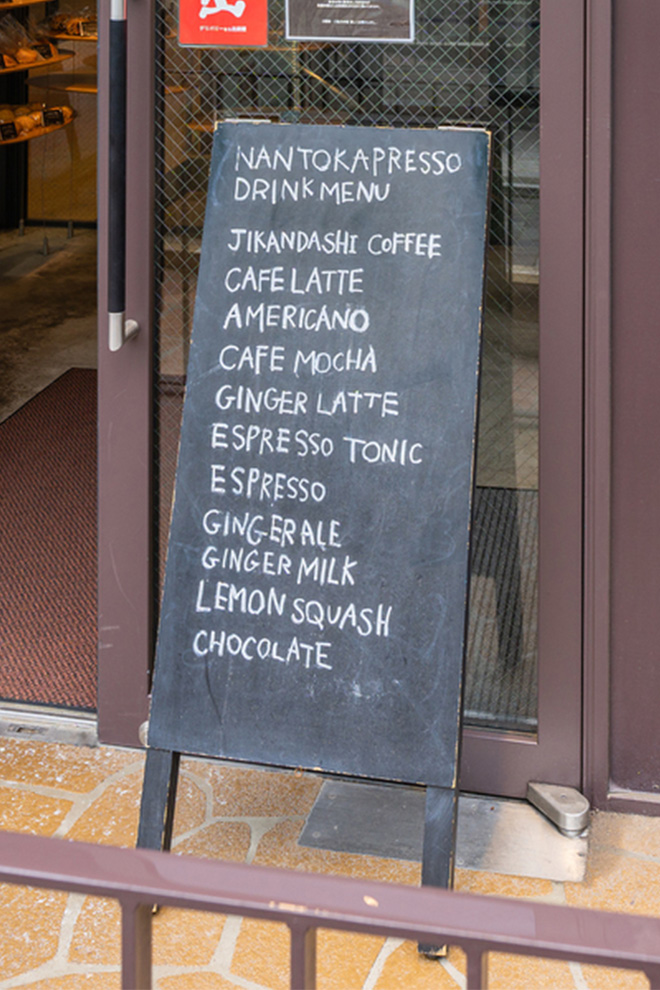 NANTOKAPRESSO
DRINK MENU
JIKANDASHI COFFEE
CAFE LATTE
AMERICANO
CAFE MOCHA
GINGER LATTE
ESPRESSO TONIC
ESPRESSO
GINGERALE
GINGER MILK
LEMON SQUASH
CHOCOLATE